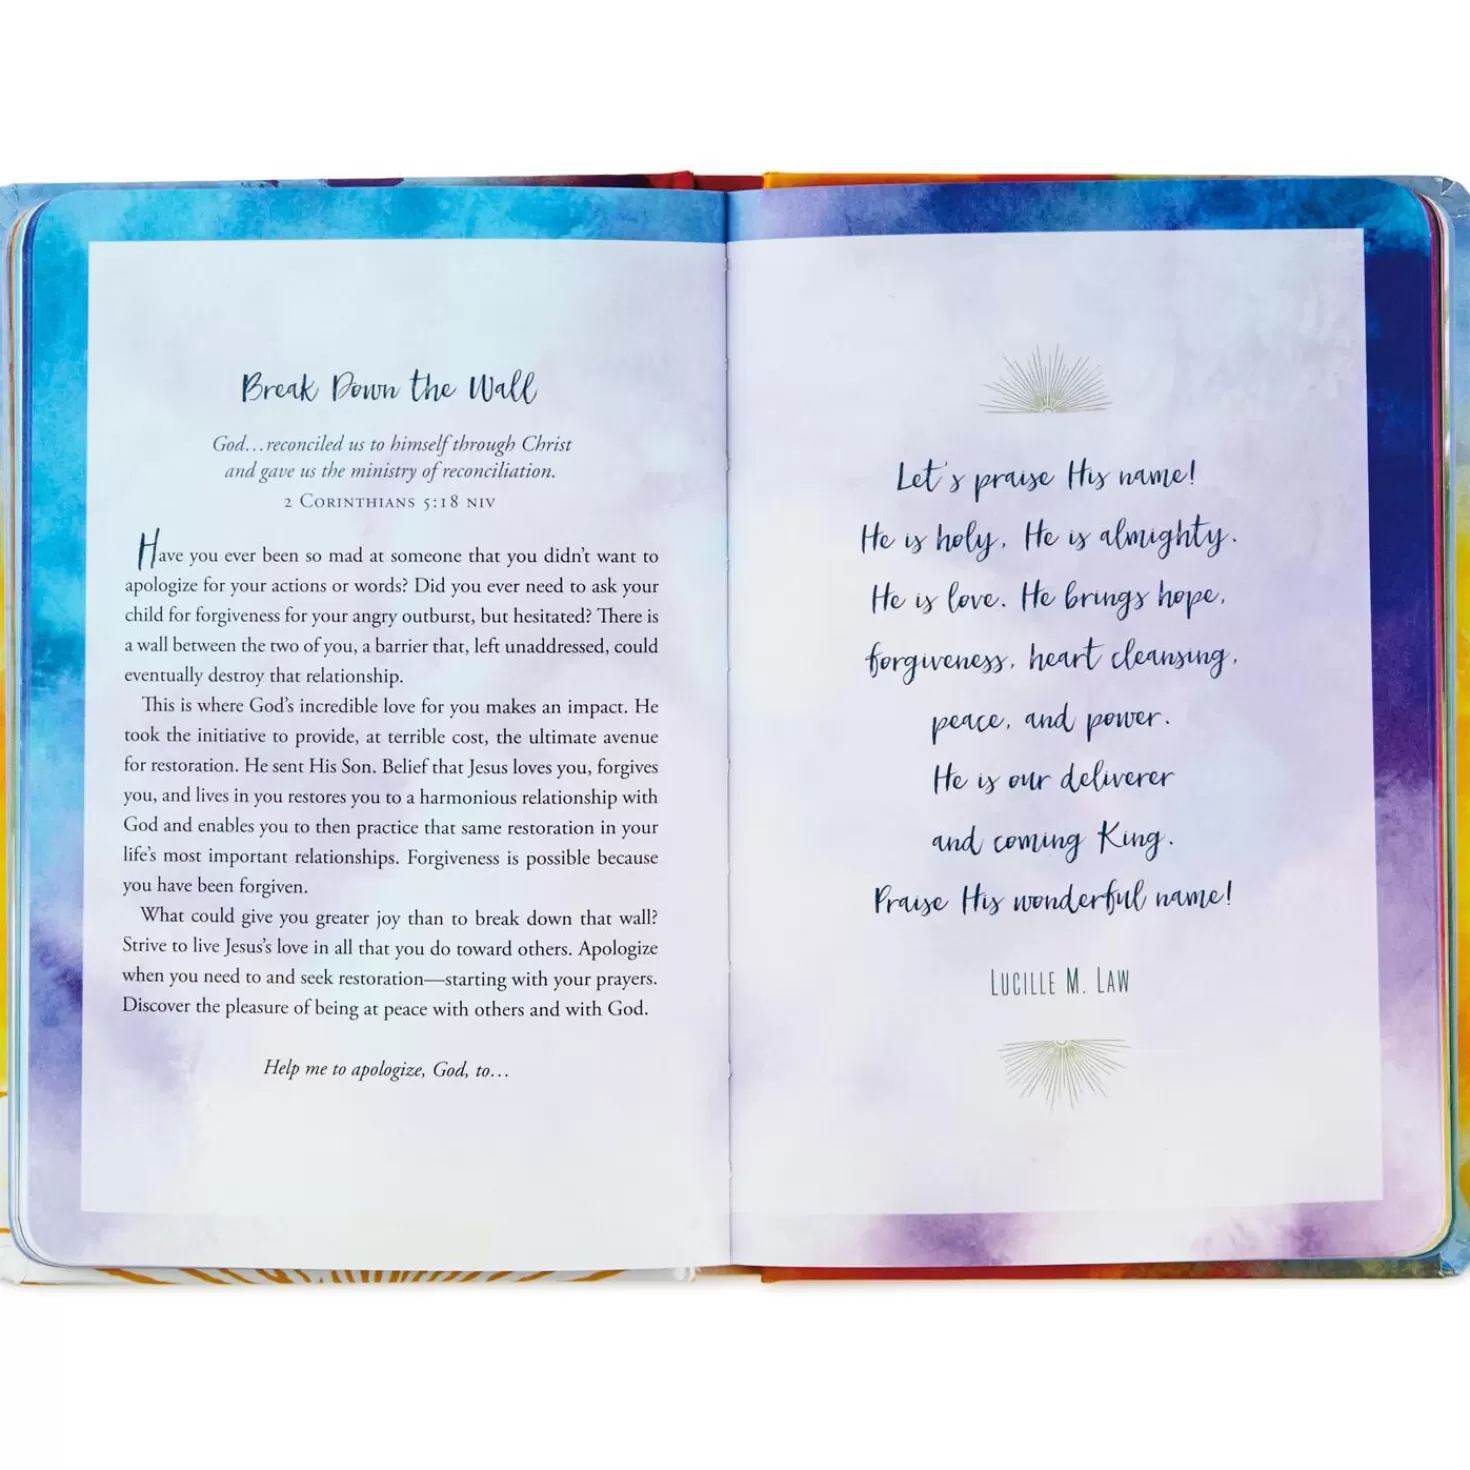 Break Down the Wall
God…reconciled us to himself through Christ
and gave us the ministry of reconciliation.
2 Corinthians 5:18 NIV
Have you ever been so mad at someone that you didn't want to
apologize for your actions or words? Did you ever need to ask your
child for forgiveness for your angry outburst, but hesitated? There is
a wall between the two of you, a barrier that, left unaddressed, could
eventually destroy that relationship.
This is where God's incredible love for you makes an impact. He
took the initiative to provide, at terrible cost, the ultimate avenue
for restoration. He sent His Son. Belief that Jesus loves you, forgives
you, and lives in you restores you to a harmonious relationship with
God and enables you to then practice that same restoration in your
life's most important relationships. Forgiveness is possible because
you have been forgiven.
What could give you greater joy than to break down that wall?
Strive to live Jesus's love in all that you do toward others. Apologize
when you need to and seek restoration—starting with your prayers.
Discover the pleasure of being at peace with others and with God.
Help me to apologize, God, to…
Let's praise His name!
He is holy, He is almighty.
He is love. He brings hope,
forgiveness, heart cleansing,
peace, and power.
He is our deliverer
and coming King.
Praise His wonderful name!
Lucille M. Law